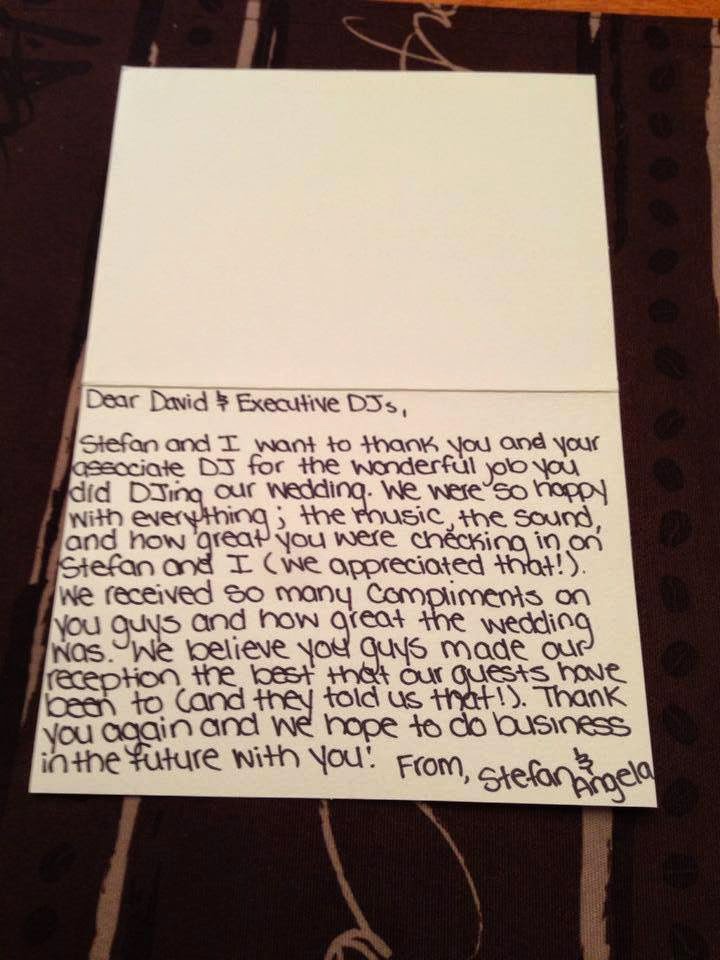 Dear David & Executive DJs,
Stefan and I want to thank you and your
associate DJ for the wonderful job you
did DJing our wedding. We were so happy
with everything; the music, the sound,
and how great you were checking in on
Stefan and I (we appreciated that!).
We received so many compliments on
you guys and how great the wedding
was. We believe you guys made our
reception the best that our guests have
been to (and they told us that!). Thank
you again and we hope to do business
in the future with you! From, Stefan &
Angela